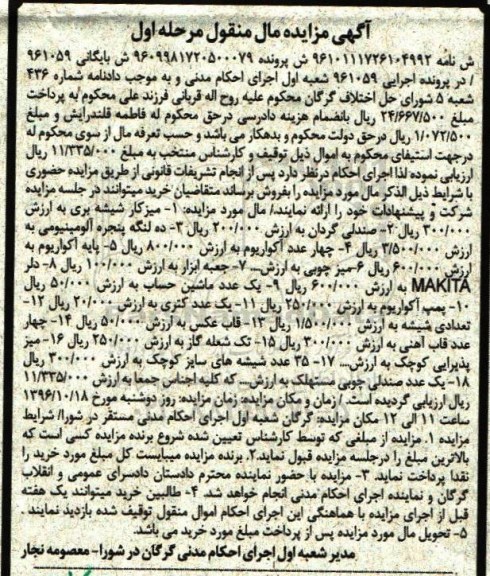 آگهی مزایده مال منقول مرحله اول
ش نامه ۹۶۱۰۱۱۱۷۲۶۱۰۴۹۹۲ ش پرونده ۹۶۰۹۹۸۱۷۲۰۵۰۰۰۷۹ ش بایگانی ۹۶۱۰۵۹
/ در پرونده اجرایی ۹۶۱۰۵۹ شعبه اول اجرای احکام مدنی و به موجب دادنامه شماره ۴۳۶
شعبه ۵ شورای حل اختلاف گرگان محکوم علیه روح اله قربانی فرزند علی محکوم به پرداخت
مبلغ ۲۴/۶۶۷/۵۰۰ ریال بانضمام هزینه دادرسی درحق محکوم له فاطمه قلندرایش و مبلغ
۱/۰۷۲/۵۰۰ ریال درحق دولت محکوم و بدهکار می باشد و حسب تعرفه مال از سوی محکوم له
درجهت استیفای محکوم به اموال ذیل توقیف و کارشناس منتخب به مبلغ ۱۱/۳۳۵/۰۰۰ ریال
ارزیابی نموده لذا اجرای احکام درنظر دارد پس از انجام تشریفات قانونی از طریق مزایده حضوری
با شرایط ذیل الذکر مال مورد مزایده را بفروش برساند متقاضیان خرید میتوانند در جلسه مزایده
شرکت و پیشنهادات خود را ارائه نمایند./ مال مورد مزایده: ۱- میزکار شیشه بری به ارزش
۳۰۰/۰۰۰ ریال ۲- صندلی گردان به ارزش ۲۰۰/۰۰۰ ریال ۳- ده لنگه پنجره آلومینیومی به
ارزش ۳/۵۰۰/۰۰۰ ریال ۴- چهار عدد آکواریوم به ارزش ۸۰۰/۰۰۰ ریال ۵- پایه آکواریوم به
ارزش ۶۰۰/۰۰۰ ریال ۶-میز چوبی به ارزش... ۷- جعبه ابزار به ارزش ۱۰۰/۰۰۰ ریال ۸- دلر
MAKITA به ارزش ۶۰۰/۰۰۰ ریال ۹- یک عدد ماشین حساب به ارزش ۵۰/۰۰۰ ریال
۱۰- پمپ آکواریوم به ارزش ۲۵۰/۰۰۰ ریال ۱۱- یک عدد کتری به ارزش ۲۰/۰۰۰ ریال ۱۲-
تعدادی شیشه به ارزش ۱/۵۰۰/۰۰۰ ریال ۱۳- قاب عکس به ارزش ۵۰/۰۰۰ ریال ۱۴- چهار
عدد قاب آهنی به ارزش ۳۰۰/۰۰۰ ریال ۱۵- تک شعله گاز به ارزش ۲۵۰/۰۰۰ ریال ۱۶- میز
پذیرایی کوچک به ارزش... ۱۷- ۳۵ عدد شیشه های سایز کوچک به ارزش ۳۰۰/۰۰۰ ریال
۱۸- یک عدد صندلی چوبی مستهلک به ارزش... که کلیه اجناس جمعا به ارزش ۱۱/۳۳۵/۰۰۰
ریال ارزیابی گردیده است. / زمان و مکان مزایده: زمان مزایده: روز دوشنبه مورخ ۱۳۹۶/۱۰/۱۸
ساعت ۱۱ الی ۱۲ مکان مزایده: گرگان شعبه اول اجرای احکام مدنی مستقر در شورا/ شرایط
مزایده ۱. مزایده از مبلغی که توسط کارشناس تعیین شده شروع برنده مزایده کسی است که
بالاترین مبلغ را درجلسه مزایده قبول نماید.۲. برنده مزایده میبایست کل مبلغ مورد خرید را
نقدا پرداخت نماید. ۳- مزایده با حضور نماینده محترم دادستان دادسرای عمومی و انقلاب
گرگان و نماینده اجرای احکام مدنی انجام خواهد شد. ۴- طالبین خرید میتوانند یک هفته
قبل از اجرای مزایده با هماهنگی این اجرای احکام اموال منقول توقیف شده بازدید نمایند.
۵- تحویل مال مورد مزایده پس از پرداخت مبلغ مورد خرید می باشد.
مدیر شعبه اول اجرای احکام مدنی گرگان در شورا- معصومه نجار